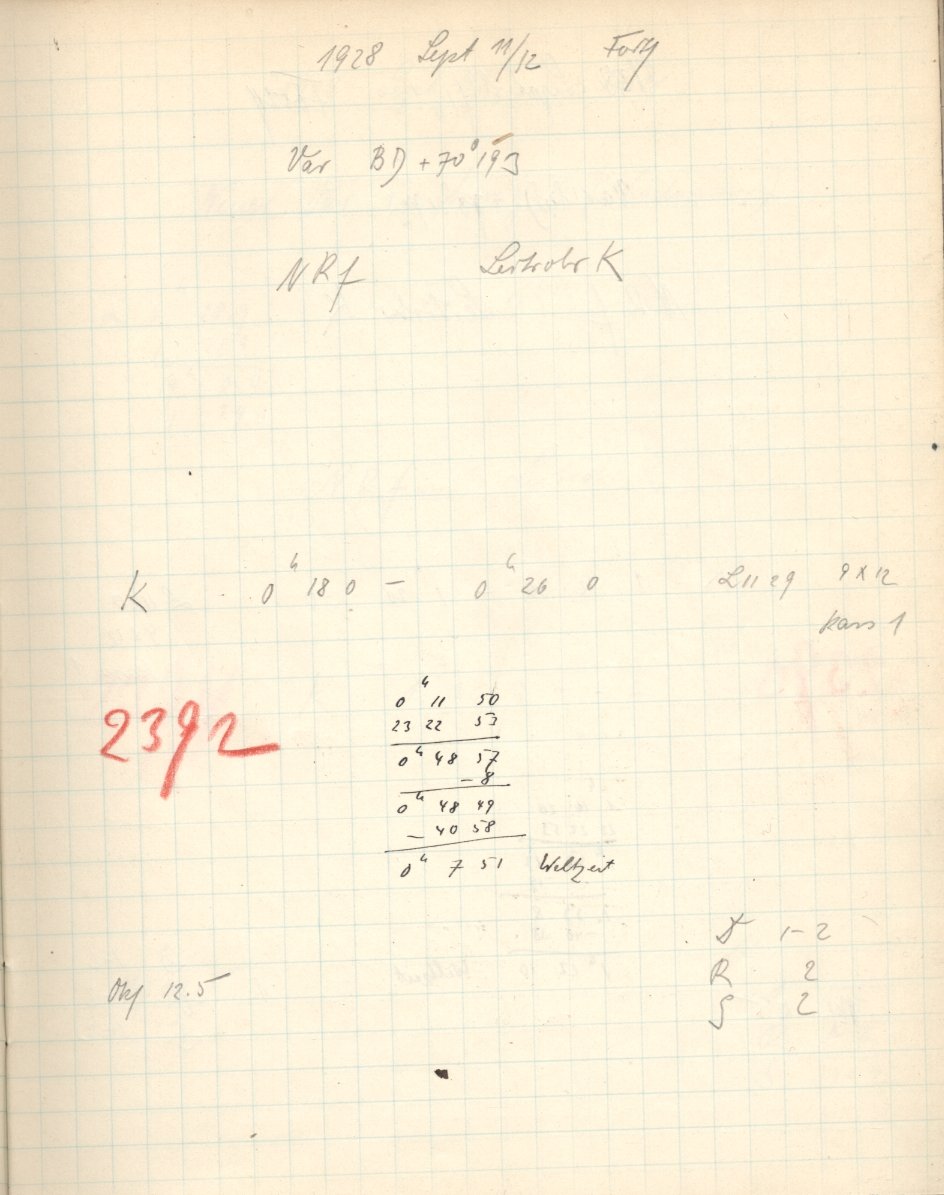 1928 Sept 11/12 Forts
Var BD +70° 193
NRf Leitrohr K
K 0ʰ 18 0 – 0ʰ 26 0 L1129 9x12
Kass 1
2392
0ʰ 11 50
23 22 53
0ʰ 48 57
– 8
0ʰ 48 49
– 40 58
0ʰ 7 51 Weltzeit
1–2
R 2
Okf 12.5
S 2